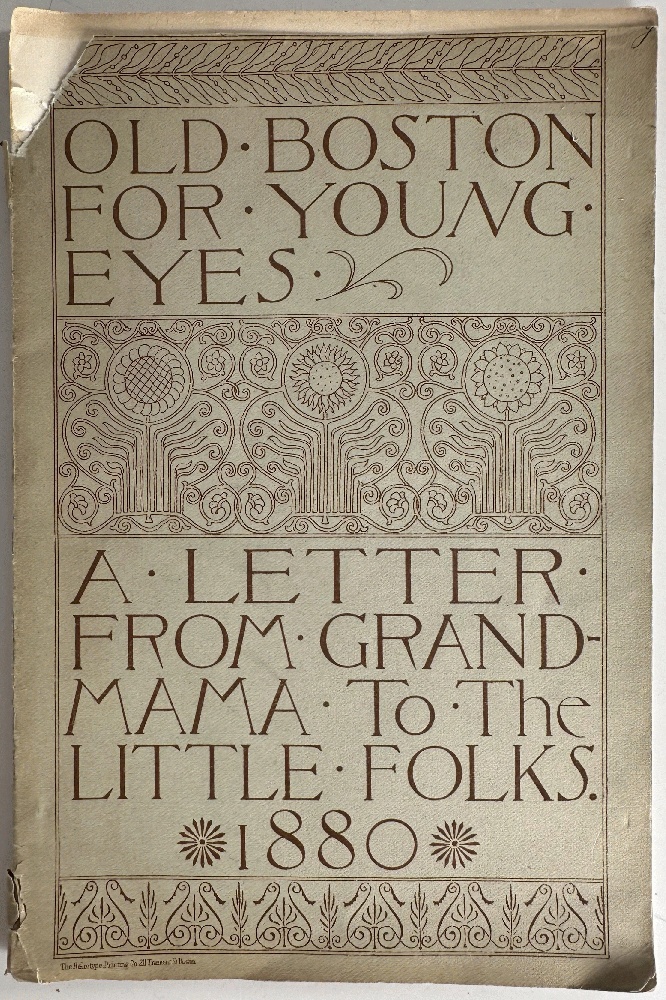 OLD · BOSTON
FOR · YOUNG ·
EYES ·
A · LETTER ·
FROM · GRAND-
MAMA · To · The
LITTLE · FOLKS.
1880
The Heliotype Printing Co. 211 Tremont St. Boston